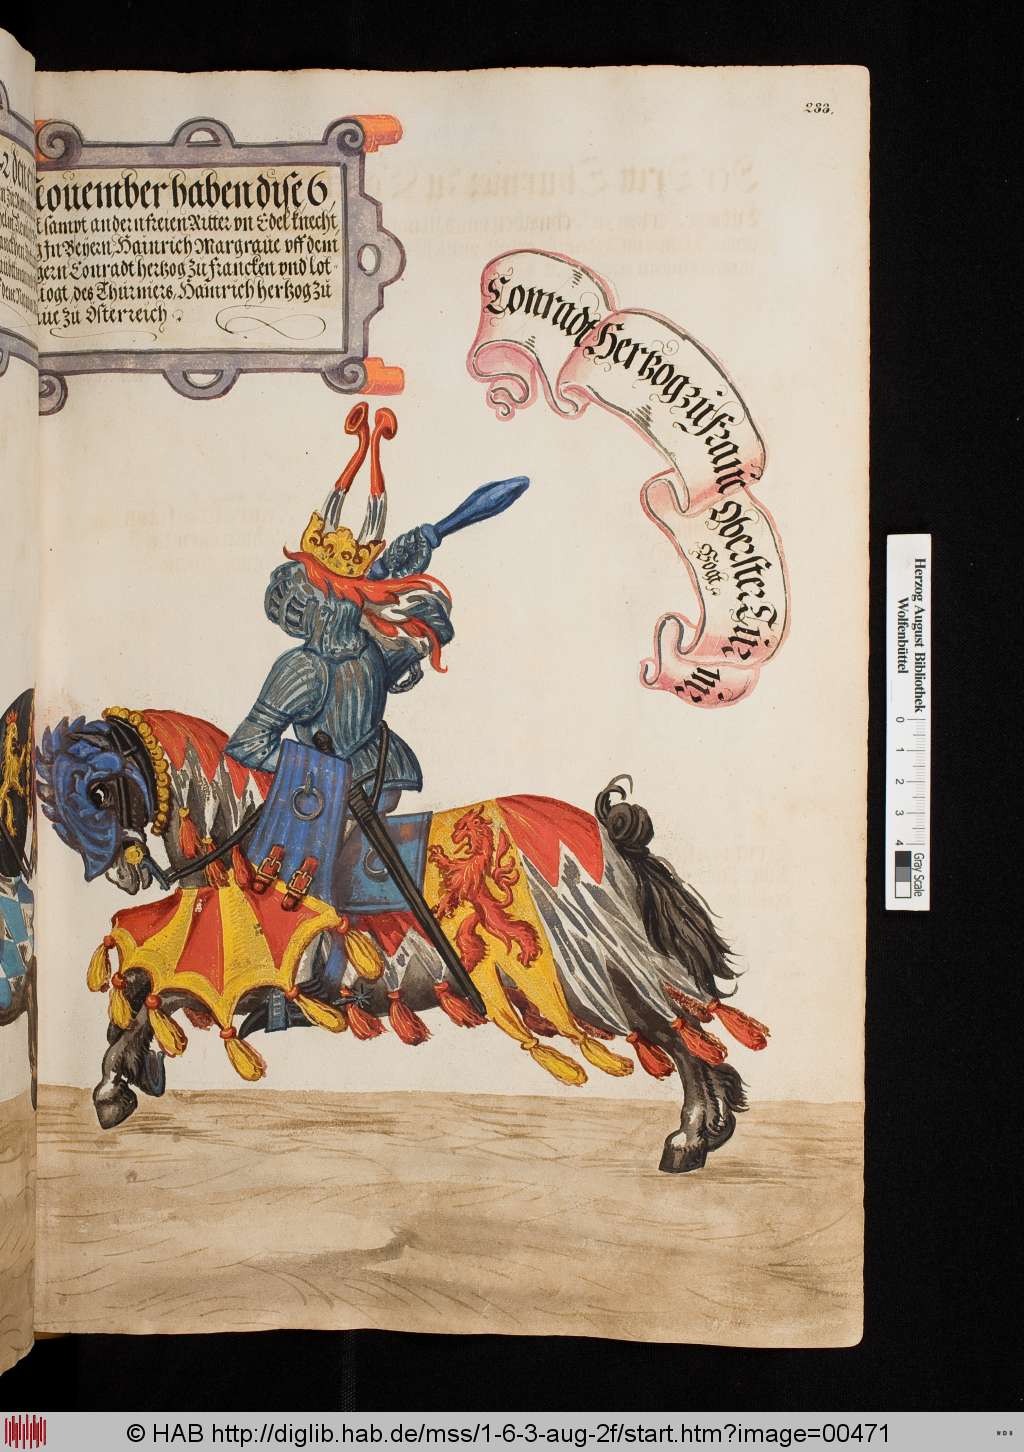 233.
Nouember haben dise 6
sampt andern freien Ritter vn Edel knecht,
In Beyern, Hainrich Margraue vff dem
gern Conradt hertzog zu francken vnd lot-
des Thurniers, Hainrich hertzog zu
aue zu Osterreich
Conradt Hertzog zu franc Oberster
Vogt
Herzog August Bibliothek
Wolfenbüttel
0 1 2 3 4
Gray Scale
© HAB http://diglib.hab.de/mss/1-6-3-aug-2f/start.htm?image=00471